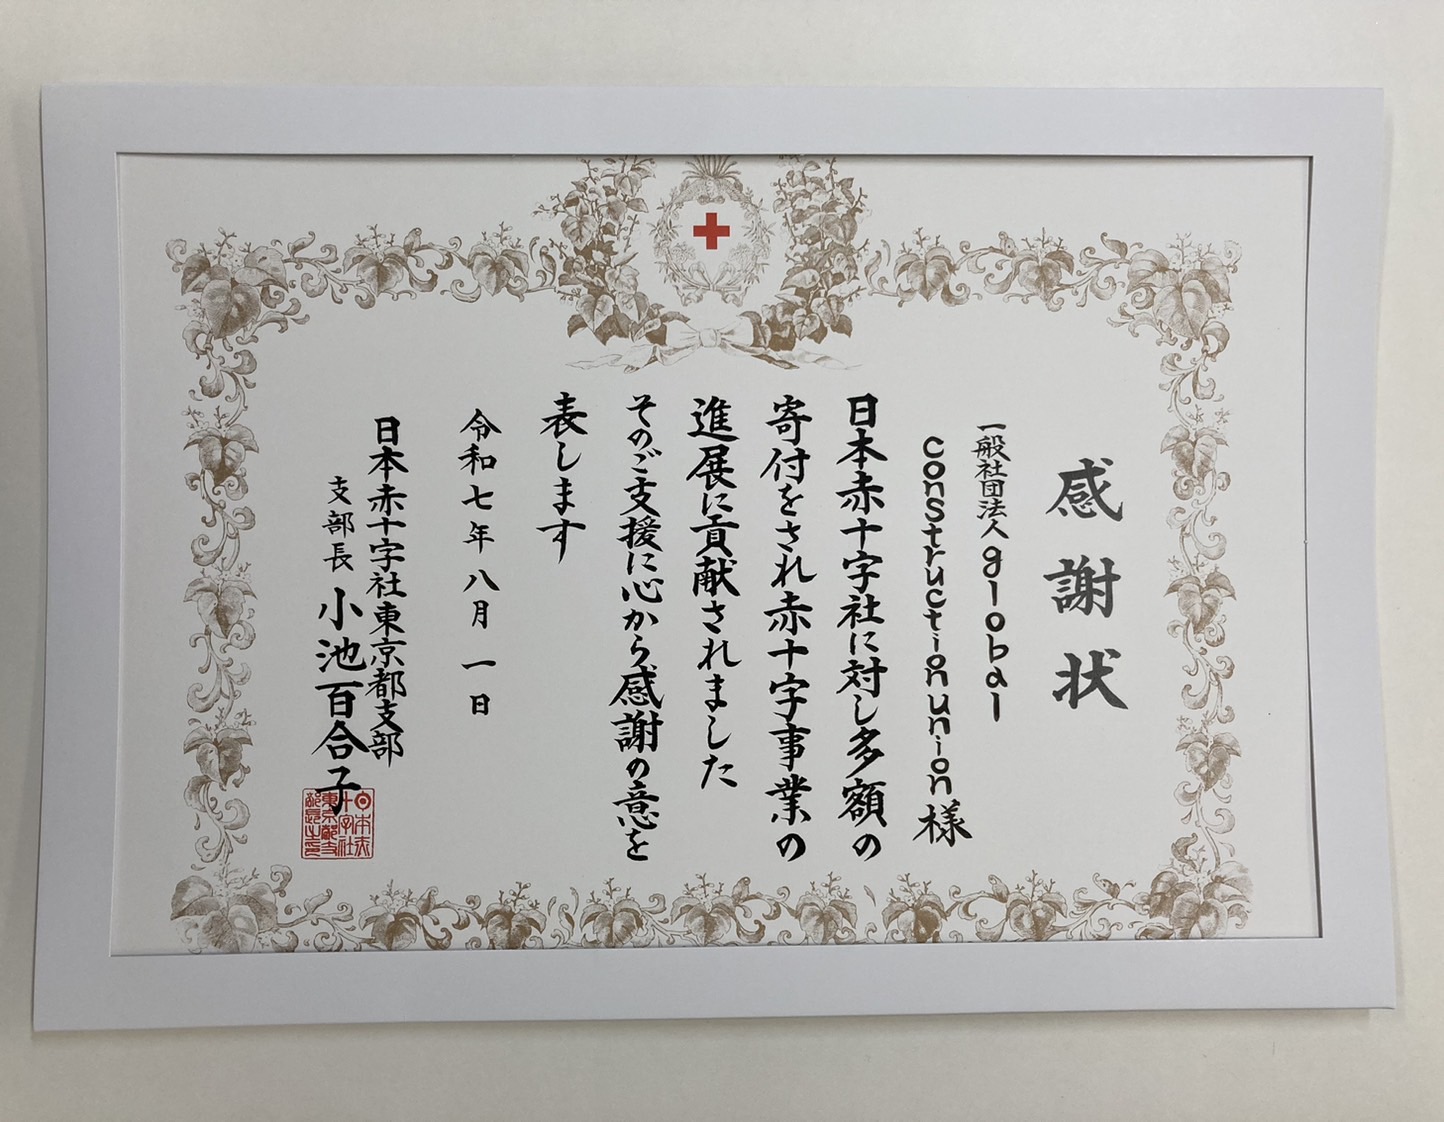 感謝状
一般社団法人global
construction union様
日本赤十字社に対し多額の
寄付をされ赤十字事業の
進展に貢献されました
そのご支援に心から感謝の意を
表します
令和七年八月一日
日本赤十字社東京都支部
支部長 小池百合子